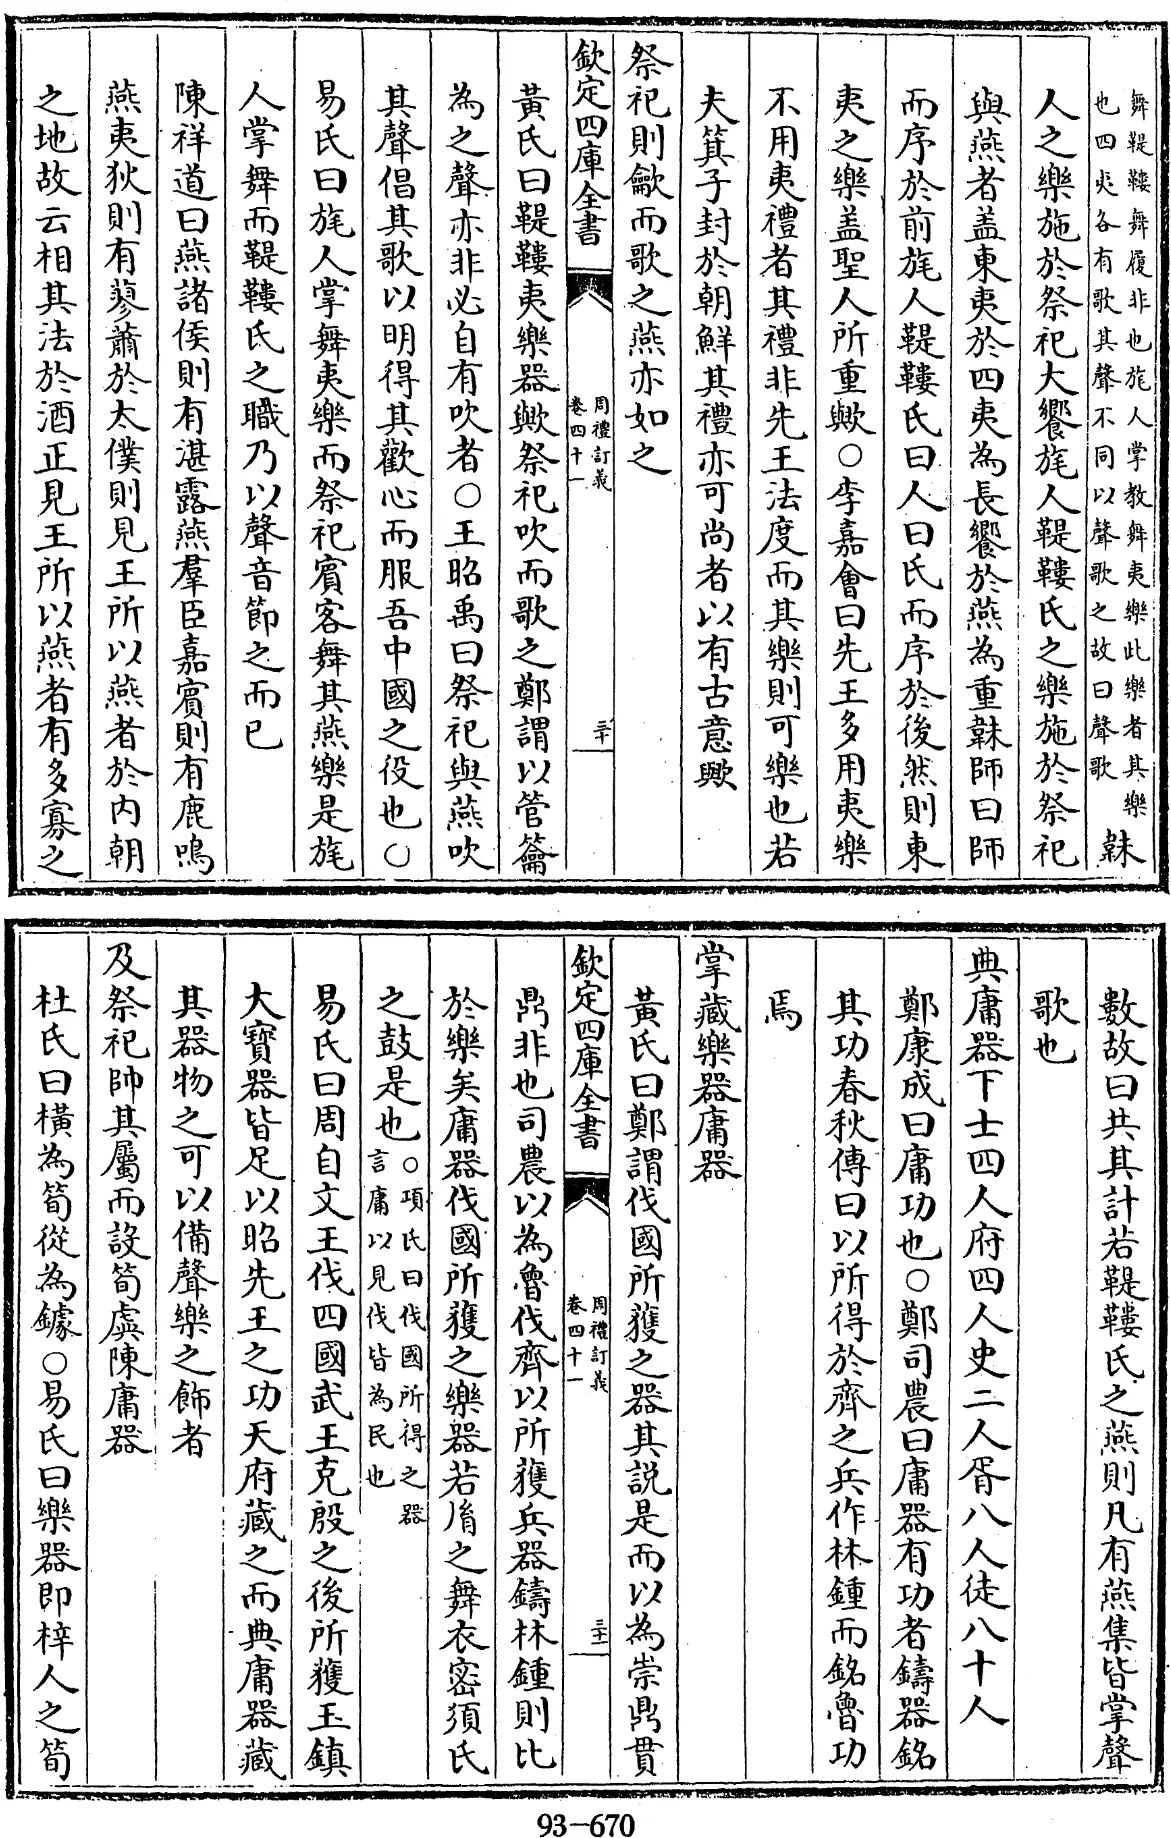 舞鞮鞻舞履非也旄人掌教舞夷樂此樂者其樂
也四夷各有歌其聲不同以聲歌之故曰聲歌
韎
人之樂施於祭祀大饗旄人鞮鞻氏之樂施於祭祀
與燕者盖東夷於四夷為長饗於燕為重韎師曰師
而序於前旄人鞮鞻氏曰人曰氏而序於後然則東
夷之樂盖聖人所重歟○李嘉會曰先王多用夷樂
不用夷禮者其禮非先王法度而其樂則可樂也若
夫箕子封於朝鮮其禮亦可尚者以有古意歟
祭祀則龡而歌之燕亦如之
欽定四庫全書
周禮訂義
卷四十一
三十
黃氏曰鞮鞻夷樂器歟祭祀吹而歌之鄭謂以管籥
為之聲亦非必自有吹者○王昭禹曰祭祀與燕吹
其聲倡其歌以明得其歡心而服吾中國之役也○
易氏曰旄人掌舞夷樂而祭祀賓客舞其燕樂是旄
人掌舞而鞮鞻氏之職乃以聲音節之而已
陳祥道曰燕諸侯則有湛露燕羣臣嘉賓則有鹿鳴
燕夷狄則有蓼蕭於太僕則見王所以燕者於内朝
之地故云相其法於酒正見王所以燕者有多寡之
數故曰共其計若鞮鞻氏之燕則凡有燕集皆掌聲
歌也
典庸器下士四人府四人史二人胥八人徒八十人
鄭康成曰庸功也○鄭司農曰庸器有功者鑄器銘
其功春秋傳曰以所得於齊之兵作林鍾而銘魯功
焉
掌藏樂器庸器
黃氏曰鄭謂伐國所獲之器其説是而以為崇鼎貫
欽定四庫全書
周禮訂義
卷四十一
三十一
鼎非也司農以為魯伐齊以所獲兵器鑄林鍾則比
於樂矣庸器伐國所獲之樂器若胤之舞衣密須氏
之鼓是也○項氏曰伐國所得之器
言庸以見伐皆為民也
易氏曰周自文王伐四國武王克殷之後所獲玉鎮
大寶器皆足以昭先王之功天府藏之而典庸器藏
其器物之可以備聲樂之飾者
及祭祀帥其屬而設筍虡陳庸器
杜氏曰橫為筍從為鐻○易氏曰樂器即梓人之筍
93-670